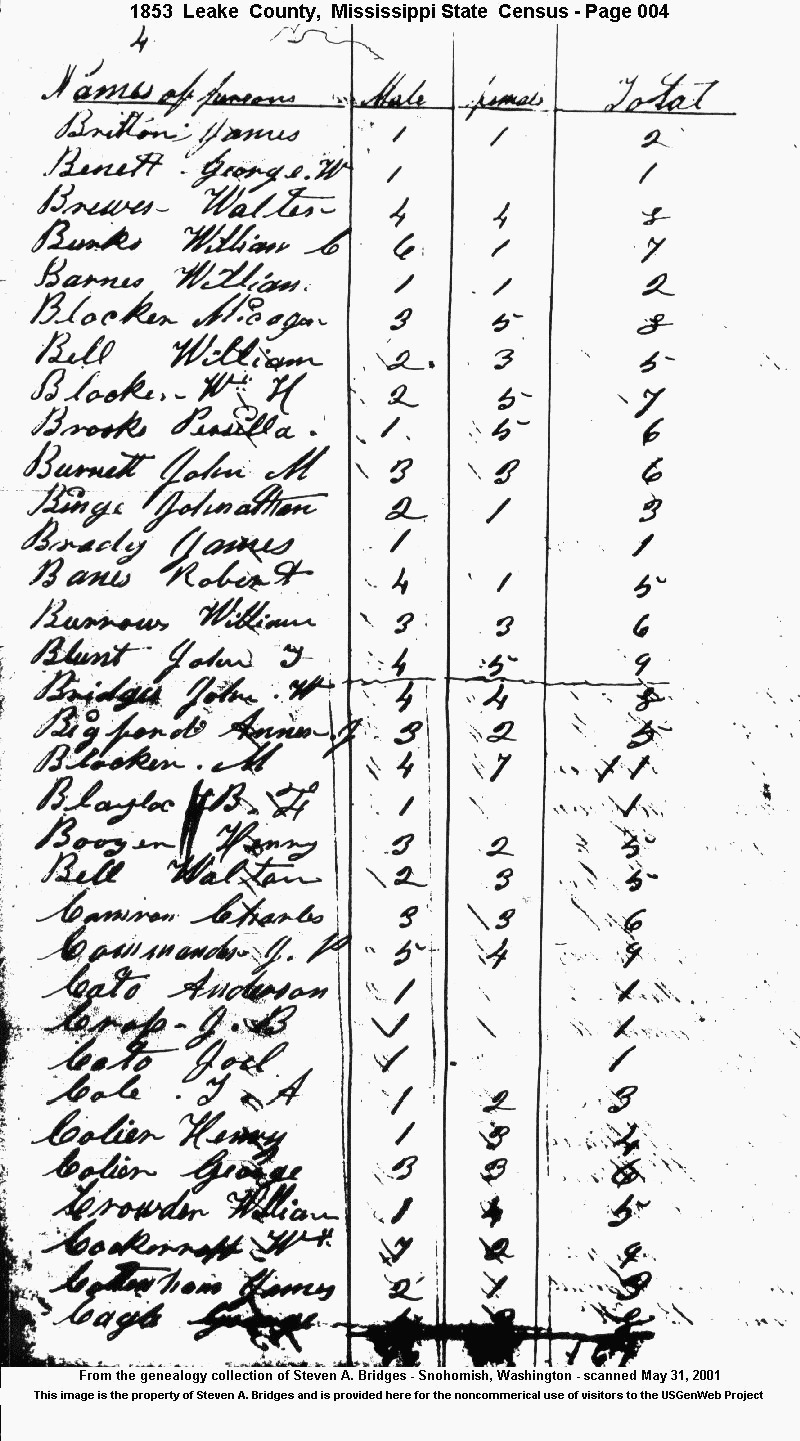 1853 Leake County, Mississippi State Census - Page 004
4
Names of persons Male female Total
Britton James 1 1 2
Benett George. W 1 1
Brewer Walter 4 4 8
Burks William C 6 1 7
Barnes William 1 1 2
Blocker Micager 3 5 8
Bell William 2 3 5
Blocker Wm H 2 5 7
Brooks Persilla 1 5 6
Burnett John M 3 3 6
Binge Johnatton 2 1 3
Brady James 1 1
Banes Robert 4 1 5
Burrows William 3 3 6
Blunt John T 4 5 9
Bridges John W 4 4 8
Bigford 3 2 5
Blocker. M 4 7 11
Blaylock B. 1 1
Boozer Henry 3 2 5
Bell Walton 2 3 5
Camron Charles 3 3 6
Commander J. P 5 4 9
Cato Anderson 1 1
J. B 1 1
Cato Joel 1 1
Cole . A 1 2 3
Colier Henry 1 3 4
Colier George 3 3 6
Crowder William 1 4 5
Wm 7 2 9
Cottenham James 2 1 3
Cagle George
From the genealogy collection of Steven A. Bridges - Snohomish, Washington - scanned May 31, 2001
This image is the property of Steven A. Bridges and is provided here for the noncommerical use of visitors to the USGenWeb Project